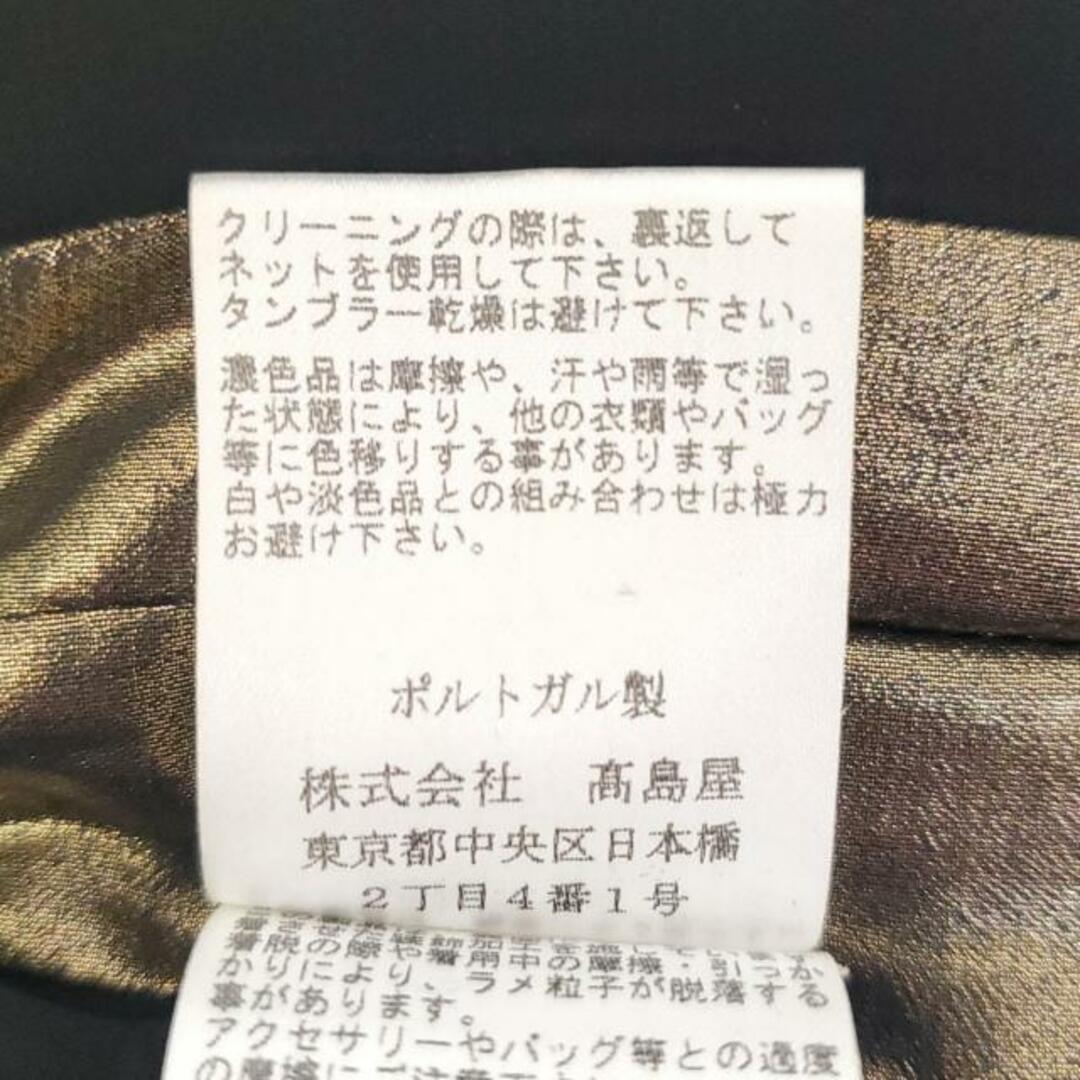 クリーニングの際は、裏返して
ネットを使用して下さい。
タンブラー乾燥は避けて下さい。
濃色品は摩擦や、汗や雨等で湿っ
た状態により、他の衣類やバッグ
等に色移りする事があります。
白や淡色品との組み合わせは極力
お避け下さい。
ポルトガル製
株式会社 髙島屋
東京都中央区日本橋
2丁目4番1号
着脱の際や着用中の摩擦・引っか
かりにより、ラメ粒子が脱落する
事があります。
アクセサリーやバッグ等との過度
の摩擦に